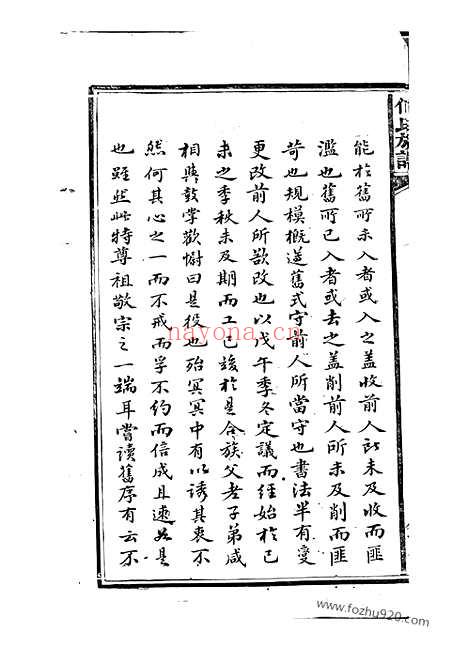 能於舊所未入者或入之蓋收前人所未及收而匪
濫也舊所已入者或去之盖削前人所未及削而匪
苛也規模概遵舊式守前人所當守也書法半有變
更改前人所欲改也以戊午季冬定議而經始於己
未之季秋未及期而工已竣於是合族父老子弟咸
相與鼓掌歡慰曰是役也殆冥冥中有以誘其衷不
然何其心之一而不戒而孚不約而信成且速若是
也雖然此特尊祖敬宗之一端耳嘗讀舊序有云不
氏族譜
nayona.cn
www.fozhu920.com